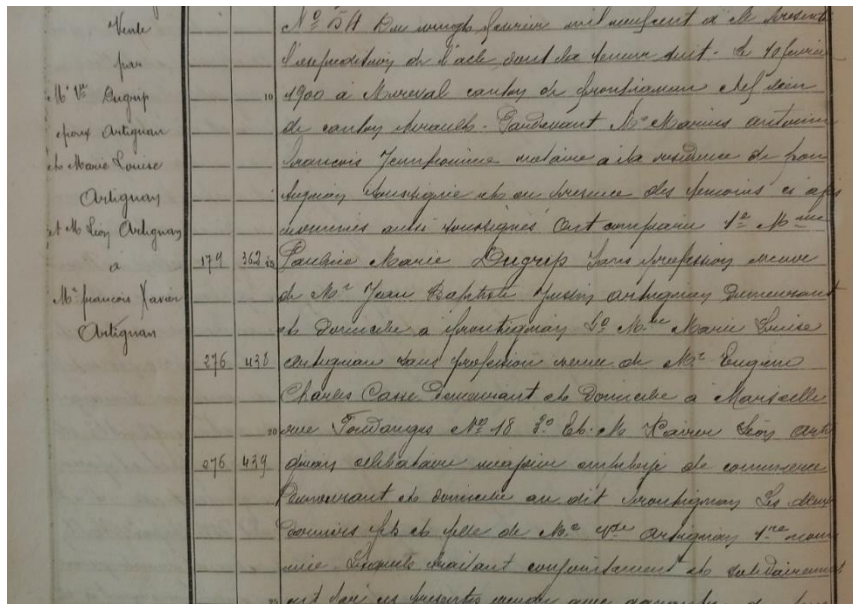 Vente
par
Me Vve Dugrip
epoux Artignan
et Marie Louise
Artignan
et M Léon Artignan
a
Mr francois Xavier
Artignan
No 154 Du vingt fevrier mil neuf cent a été presenté
l'expedition de l'acte dont la teneur suit. Le 10 fevrier
10 1900 à Mireval canton de frontignan chef lieu
de canton Herault. Pardevant Me Marius antonin
francois notaire à la residence de fron
tignan soussigné et en presence des temoins ci apres
nommés aussi soussignés Ont comparu 1o Mme
179 362 Pauline Marie Dugrip sans profession veuve
de Mr Jean Baptiste Artignan demeurant
et domiciliée a frontignan 2o Mme Marie Louise
276 438 Artignan sans profession veuve de Mr Eugène
Charles Casse demeurant et domiciliée à Marseille
20 rue No 18 3o Et M Xavier Léon Arti
276 439 gnan célibataire employé de commerce
demeurant et domicilié au dit frontignan Les deux
derniers fils et fille de Me Vve Artignan 1re nom
mée Lesquels traitant conjointement et solidairement
ont par ces presentes vendu avec